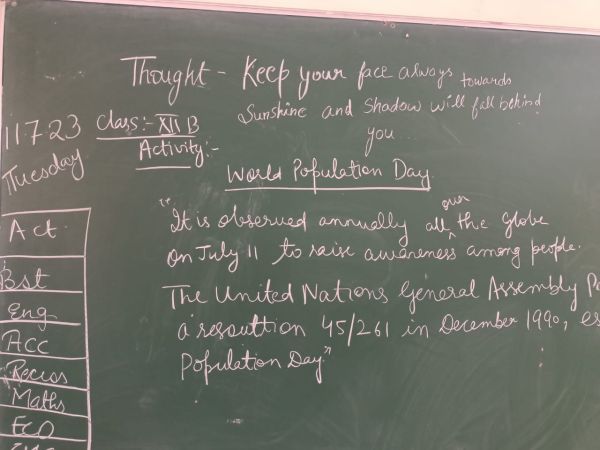 Thought - Keep your face always towards
Sunshine and Shadow will fall behind
you...
11.7.23
Tuesday
Class:- XII B
Activity:-
World Population Day
"It is observed annually all over the Globe
on July 11 to raise awareness among people.
The United Nations General Assembly
a resouttion 45/261 in December 1990,
Population Day"
Act.
Bst
Eng
Acc
Recess
Maths
ECO